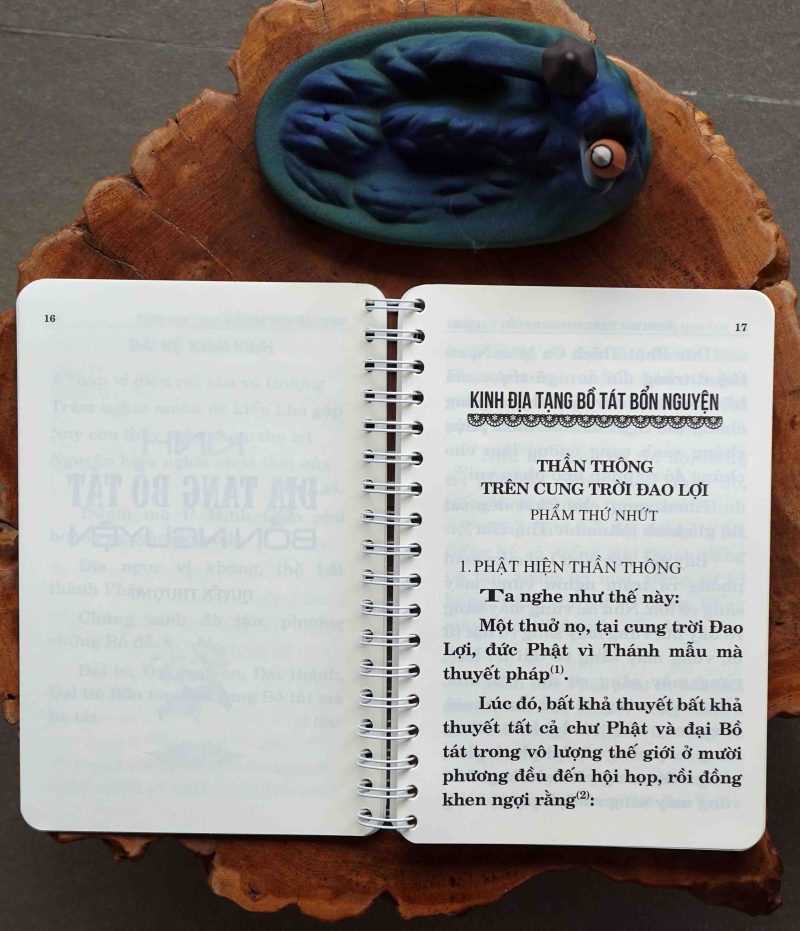 16
17
KINH ĐỊA TẠNG BỒ TÁT BỔN NGUYỆN
THẦN THÔNG
TRÊN CUNG TRỜI ĐAO LỢI
PHẨM THỨ NHỨT
1. PHẬT HIỆN THẦN THÔNG
Ta nghe như thế này:
Một thuở nọ, tại cung trời Đao
Lợi, đức Phật vì Thánh mẫu mà
thuyết pháp(1).
Lúc đó, bất khả thuyết bất khả
thuyết tất cả chư Phật và đại Bồ
tát trong vô lượng thế giới ở mười
phương đều đến hội họp, rồi đồng
khen ngợi rằng(2):